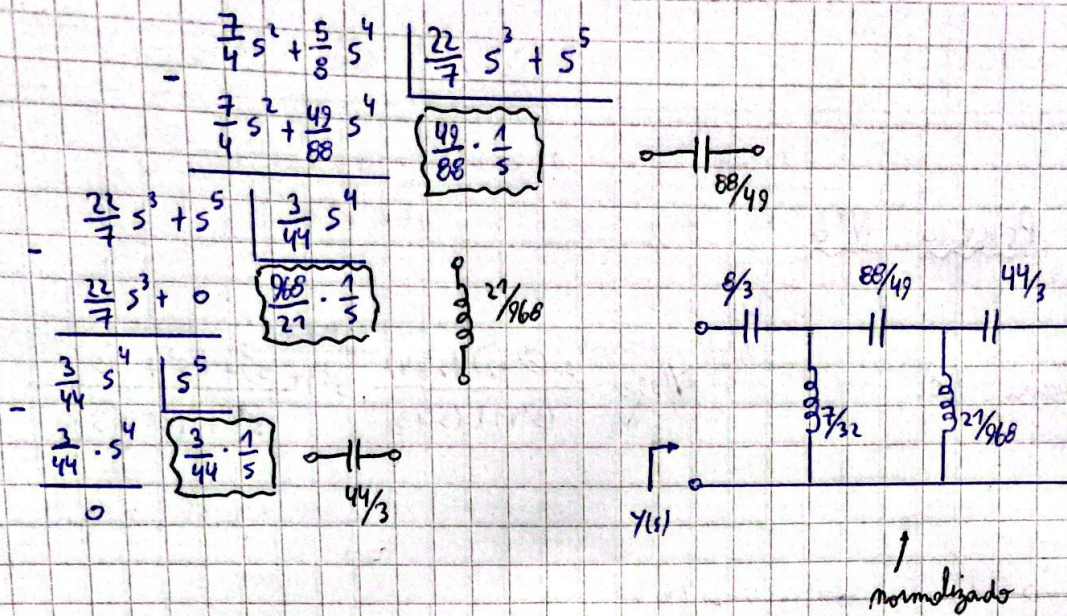 7/4 s² + 5/8 s⁴ | 22/7 s³ + s⁵
- 7/4 s² + 49/88 s⁴ 49/88 · 1/s
88/49
22/7 s³ + s⁵ | 3/44 s⁴
- 22/7 s³ + 0 968/21 · 1/s
21/968
3/44 s⁴ | s⁵
- 3/44 · s⁴ 3/44 · 1/s
0
44/3
8/3 88/49 44/3
7/32 21/968
Y(s)
normalizado